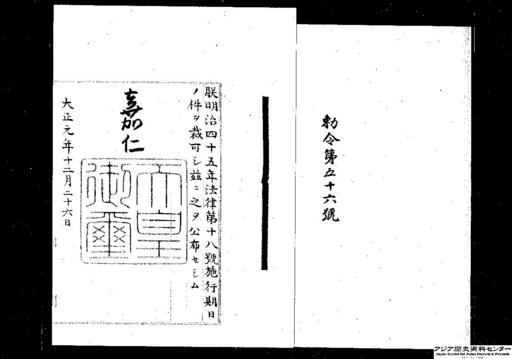 勅令第五十六號
朕明治四十五年法律第十八號施行期日
ノ件ヲ裁可シ茲ニ之ヲ公布セシム
嘉仁
天皇
御璽
大正元年十二月二十六日
アジア歴史資料センター
Japan Center for Asian Historical Records